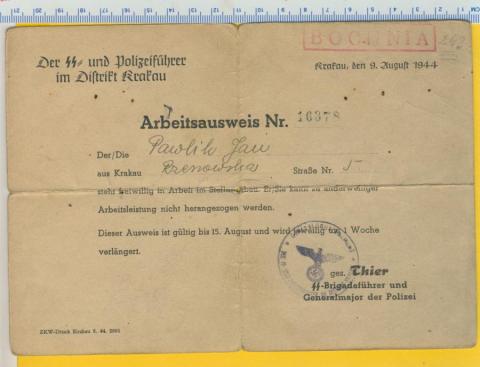 BOCHNIA
Der SS- und Polizeiführer
im Distrikt Krakau
Krakau, den 9. August 1944
Arbeitsausweis Nr. 16378
Der/Die Pawlik Jan
aus Krakau Straße Nr. 5
steht freiwillig in Arbeit im Stellungsbau. Er/Sie kann zu anderweitiger
Arbeitsleistung nicht herangezogen werden.
Dieser Ausweis ist gültig bis 15. August und wird jeweilig um 1 Woche
verlängert.
gez. Thier
SS-Brigadeführer und
Generalmajor der Polizei
ZKW-Druck Krakau 8. 44.